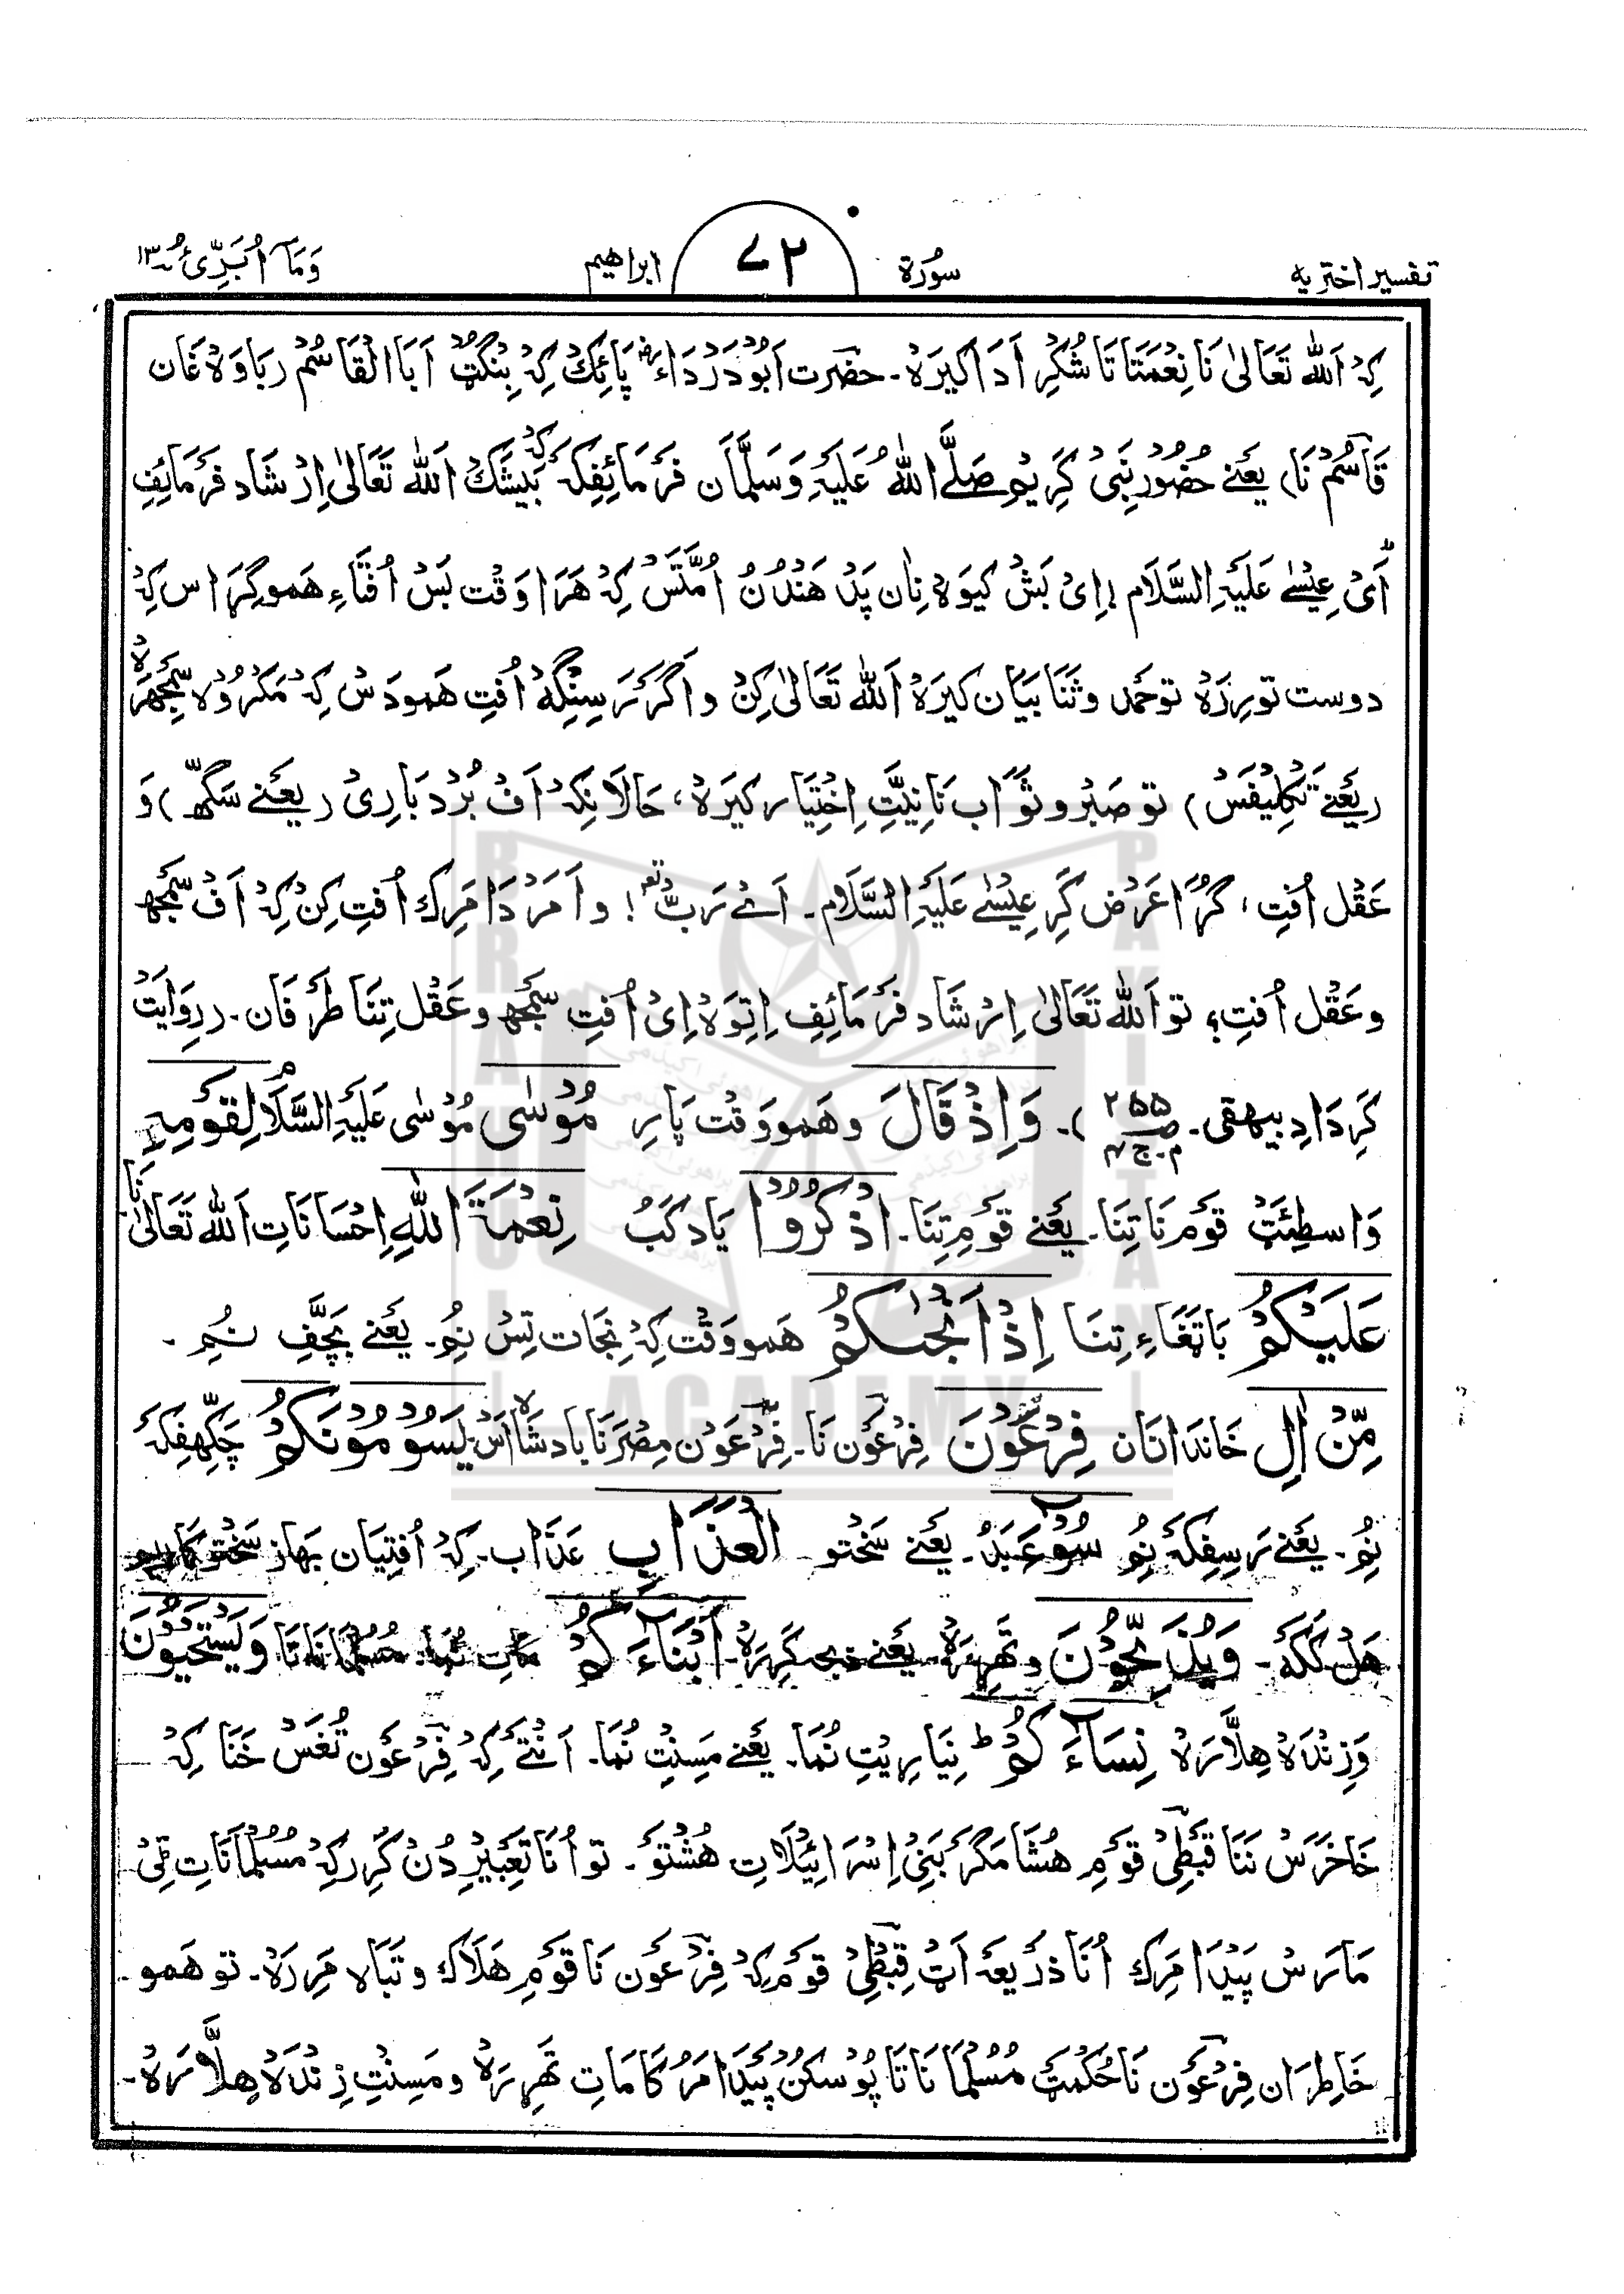 تفسیر اختریه سُورة ۷۲ ابراهیم وَمَآ اُبَرِّئُ ۱۳
کِہْ اَللّٰه تَعَالیٰ نَا نِعْمَتَا تَا شُکرِ اَدَا کیرَہْ۔ حضرت اَبُودَرْدَاءَ پَائِکْ کِہْ بِنْگُٹْ اَبَا الْقَاسُمْ رِبَاوَہْ غَان
قَاسُمْ نَا) یعنے حُضُور نَبِیْ کَرِیْم صَلَّے اللّٰهُ عَلَیْہِ وَسَلَّمَان فَرمَائِفِکَہْ کِہْ بَیشَکْ اَللّٰه تَعَالیٰ اِرْشَاد فَرمَائِفِ
اَیْ عِیسٰے عَلَیْہِ السَّلَام! اِیْ بَشْ کیوَہْ نِان پَدْ هَنْدُنْ اُمَّتَسْ کِہْ هَرَا وَقْت بَسْ اُفتَاءِ هَمو گِرَاس کِہْ
دوست تورِزَہْ تو حَمْد و ثَنَا بَیَان کیرَہْ اَللّٰه تَعَالیٰ کِنْ و اَگَر رَسِنگِہْ اُفتِ هَمودَسْ کِہْ مَکرُوْہ سَمْجھِرَہْ
(یَعنے تَکلِیْفَسْ) تو صَبْر و ثَوَاب نَا نِیَّتِ اِخْتِیَار کیرَہْ، حَالَانِکِہْ اَفْ بُرْدبَارِیْ (یعنے سَگھّ) وَ
عَقْل اُفتِ، گُڑَا عَرْض کَرِ عِیسٰے عَلَیْہِ السَّلَام۔ اَے رَبّ! و اَمَرْ دَا مَرِک اُفتِ کِنْ کِہْ اَفْ سَمْجھ
و عَقْل اُفتِ؟ تو اَللّٰه تَعَالیٰ اِرْشَاد فَرمَائِفِ اِتِوَہْ اِیْ اُفتِ سَمْجھ و عَقْل تِنَا طَرَفَان۔ (رِوَایَتْ
کَرِدَادِ بیهقی۔ م۔ج ۴ ص ۲۵۵)۔ وَاِذْ قَالَ و هَمو وَقْت پَارِ مُوْسٰی مُوْسٰی عَلَیْہِ السَّلَام لِقَوْمِہِ
وَاسطِئَتْ قَوْم نَا تِنَا۔ یَعنے قَوْمِ تِنَا۔ اذْکُرُوْا یَاد کَبُ نِعْمَةَ اللّٰهِ اِحْسَانَاتِ اَللّٰه تَعَالیٰ نَا
عَلَیْکُمْ بَاتِغَاءِ تِنَا اِذْ اَنْجٰىکُمْ هَمو وَقْت کِہْ نِجَات تِسْ نُمْ۔ یَعنے بَچَّفِ نُمِ۔
مِّنْ اٰلِ خَاندَانَان فِرْعَوْنَ فِرْعَوْن نَا۔ فِرْعَوْن مِصْرَنَا بادشَاہ اَس یَسُوْمُوْنَکُمْ چَکِّھفِکَہْ
نُمْ۔ یعنے رَسِفِکَہْ نُمْ سُوْٓءَ بَدْ۔ یعنے سَختو الْعَذَابِ عَذَاب۔ کِہْ اُفتِیَان بَهَاز سَختو کَارِیم
هَلْکَکَہْ۔ وَیُذَبِّحُوْنَ و تَهِرِرَہْ۔ یَعنے ذبح کَرِرَہْ۔ اَبْنَآءَکُمْ مَاتِ نُمَا۔ مُسلمَانَاتَا وَیَسْتَحْیُوْنَ
وَزِنْدَہْ هِلَّارَہْ نِسَآءَکُمْ ط نِیَارِیْتِ نُمَا۔ یعنے مَسِنْتِ نُمَا۔ اَنتَے کِہْ فِرْعَوْن تُغَسْ خَنَا کِہْ
خَاخَرَسْ نَنَا قِبْطِیْ قَوْمِ هُشَا مَگَر بَنِیْ اِسْرَائِیْلَاتِ هُشْتَو۔ تو اُنَا تَعْبِیْرِ دُنْ کَرِر کِہْ مُسُلْمَانَاتِ ٹِیْ
مَارَسْ پَیْدَا مَرِک اُنَا ذَرِیعَہْ اَتْ قِبْطِیْ قَوْم کِہْ فِرْعَوْن نَا قَوْمِ هَلَاک و تَبَاہ مَرِرَہْ۔ تو همو
خَاطِرَان فِرْعَوْن نَا حُکمَتْ مُسُلْمَانَاتَا پُوْسکُنْ پَیْدَا مَرُکَا مَاتِ تَهِرِرَہْ و مَسِنْتِ زِنْدَہْ هِلَّارَہْ۔
BRAHUI ACADEMY PAKISTAN